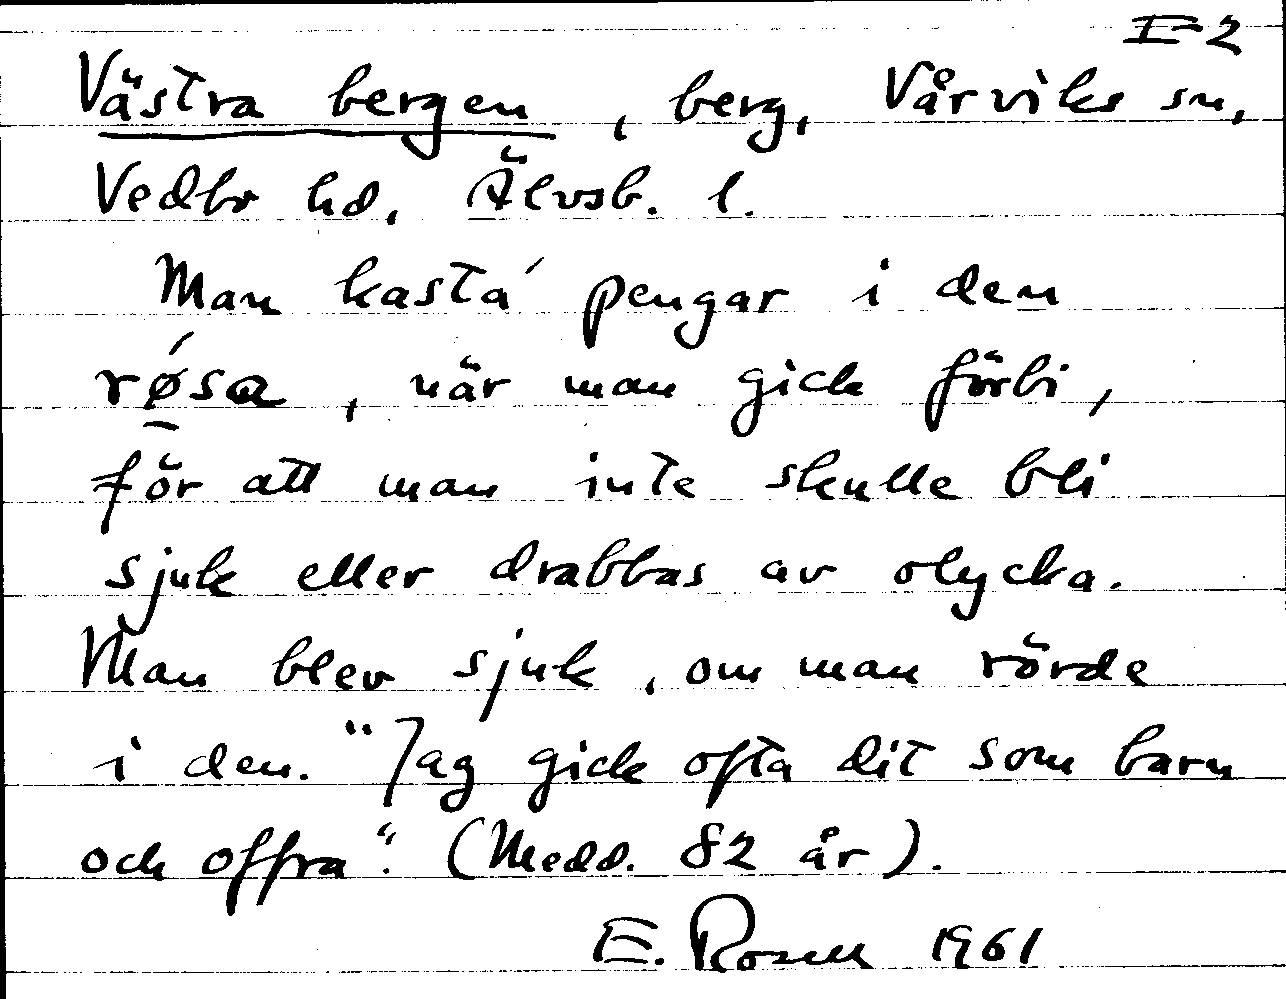 I-2
Västra bergen, berg, Vårviks sn,
Vedbo hd, Älvsb. l.
Man kasta' pengar i den
røsa, när man gick förbi,
för att man inte skulle bli
sjuk eller drabbas av olycka.
Man blev sjuk, om man rörde
i den. "Jag gick ofta dit som barn
och offra". (Medd. 82 år).
E. Rosell 1961